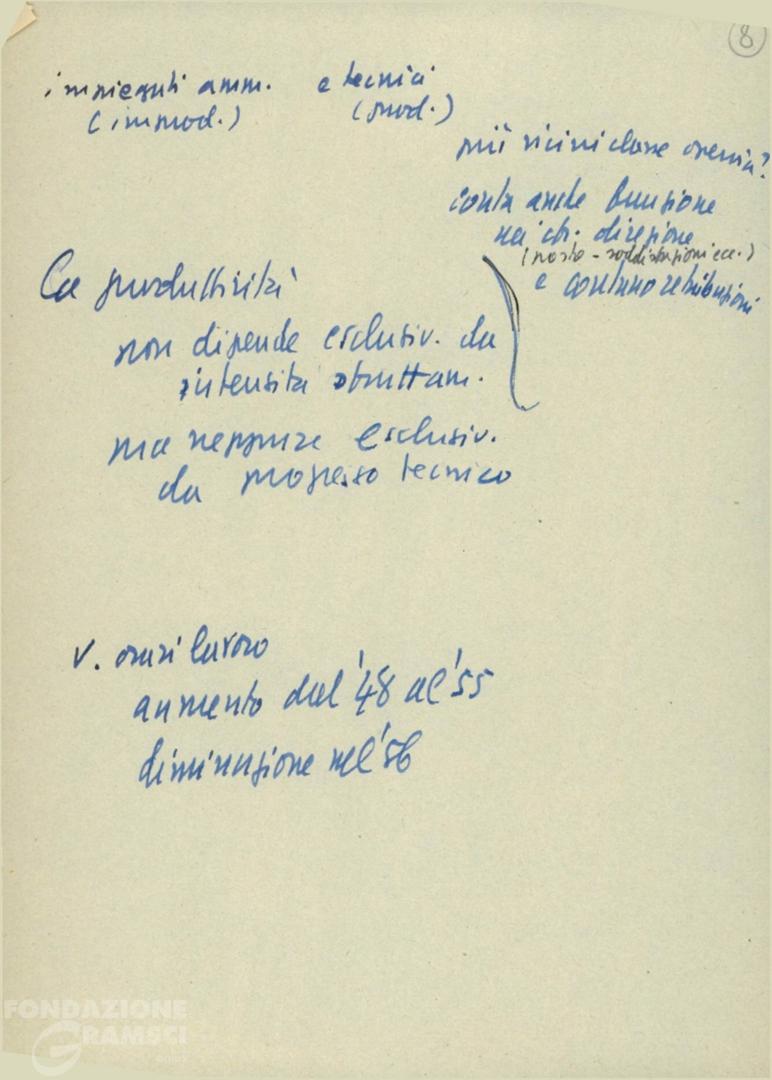 8
impiegati amm. e tecnici
(improd.) (prod.)
più vicini classe operaia?
conta anche funzione
direzione
(posto - soddisfazioni ecc.)
e contano retribuzioni
La produttività
non dipende esclusiv. da
intensità sfruttam.
ma neppure esclusiv.
da progresso tecnico
V. orari lavoro
aumento dal '48 al '55
diminuzione nel '56
FONDAZIONE
GRAMSCI